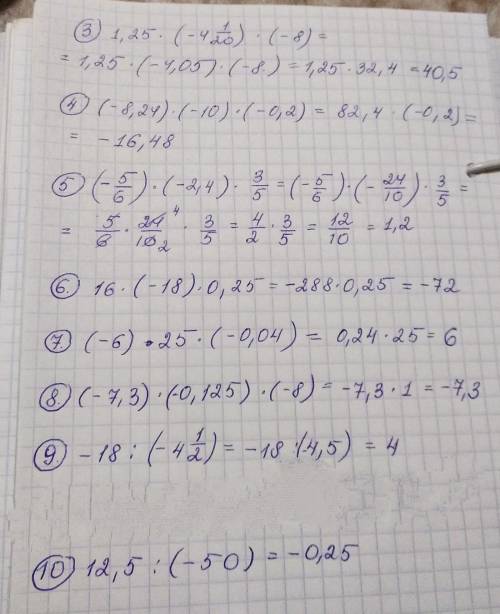 ③ 1,25 · (-4 1/20) · (-8) =
= 1,25 · (-4,05) · (-8) = 1,25 · 32,4 = 40,5
④ (-8,24) · (-10) · (-0,2) = 82,4 · (-0,2) =
= -16,48
⑤ (-5/6) · (-2,4) · 3/5 = (-5/6) · (-24/10) · 3/5 =
= 5/6 · 24 4/10 2 · 3/5 = 4/2 · 3/5 = 12/10 = 1,2
⑥. 16 · (-18) · 0,25 = -288 · 0,25 = -72
⑦. (-6) · 25 · (-0,04) = 0,24 · 25 = 6
⑧. (-7,3) · (-0,125) · (-8) = -7,3 · 1 = -7,3
⑨. -18 : (-4 1/2) = -18 : (-4,5) = 4
⑩ 12,5 : (-50) = -0,25